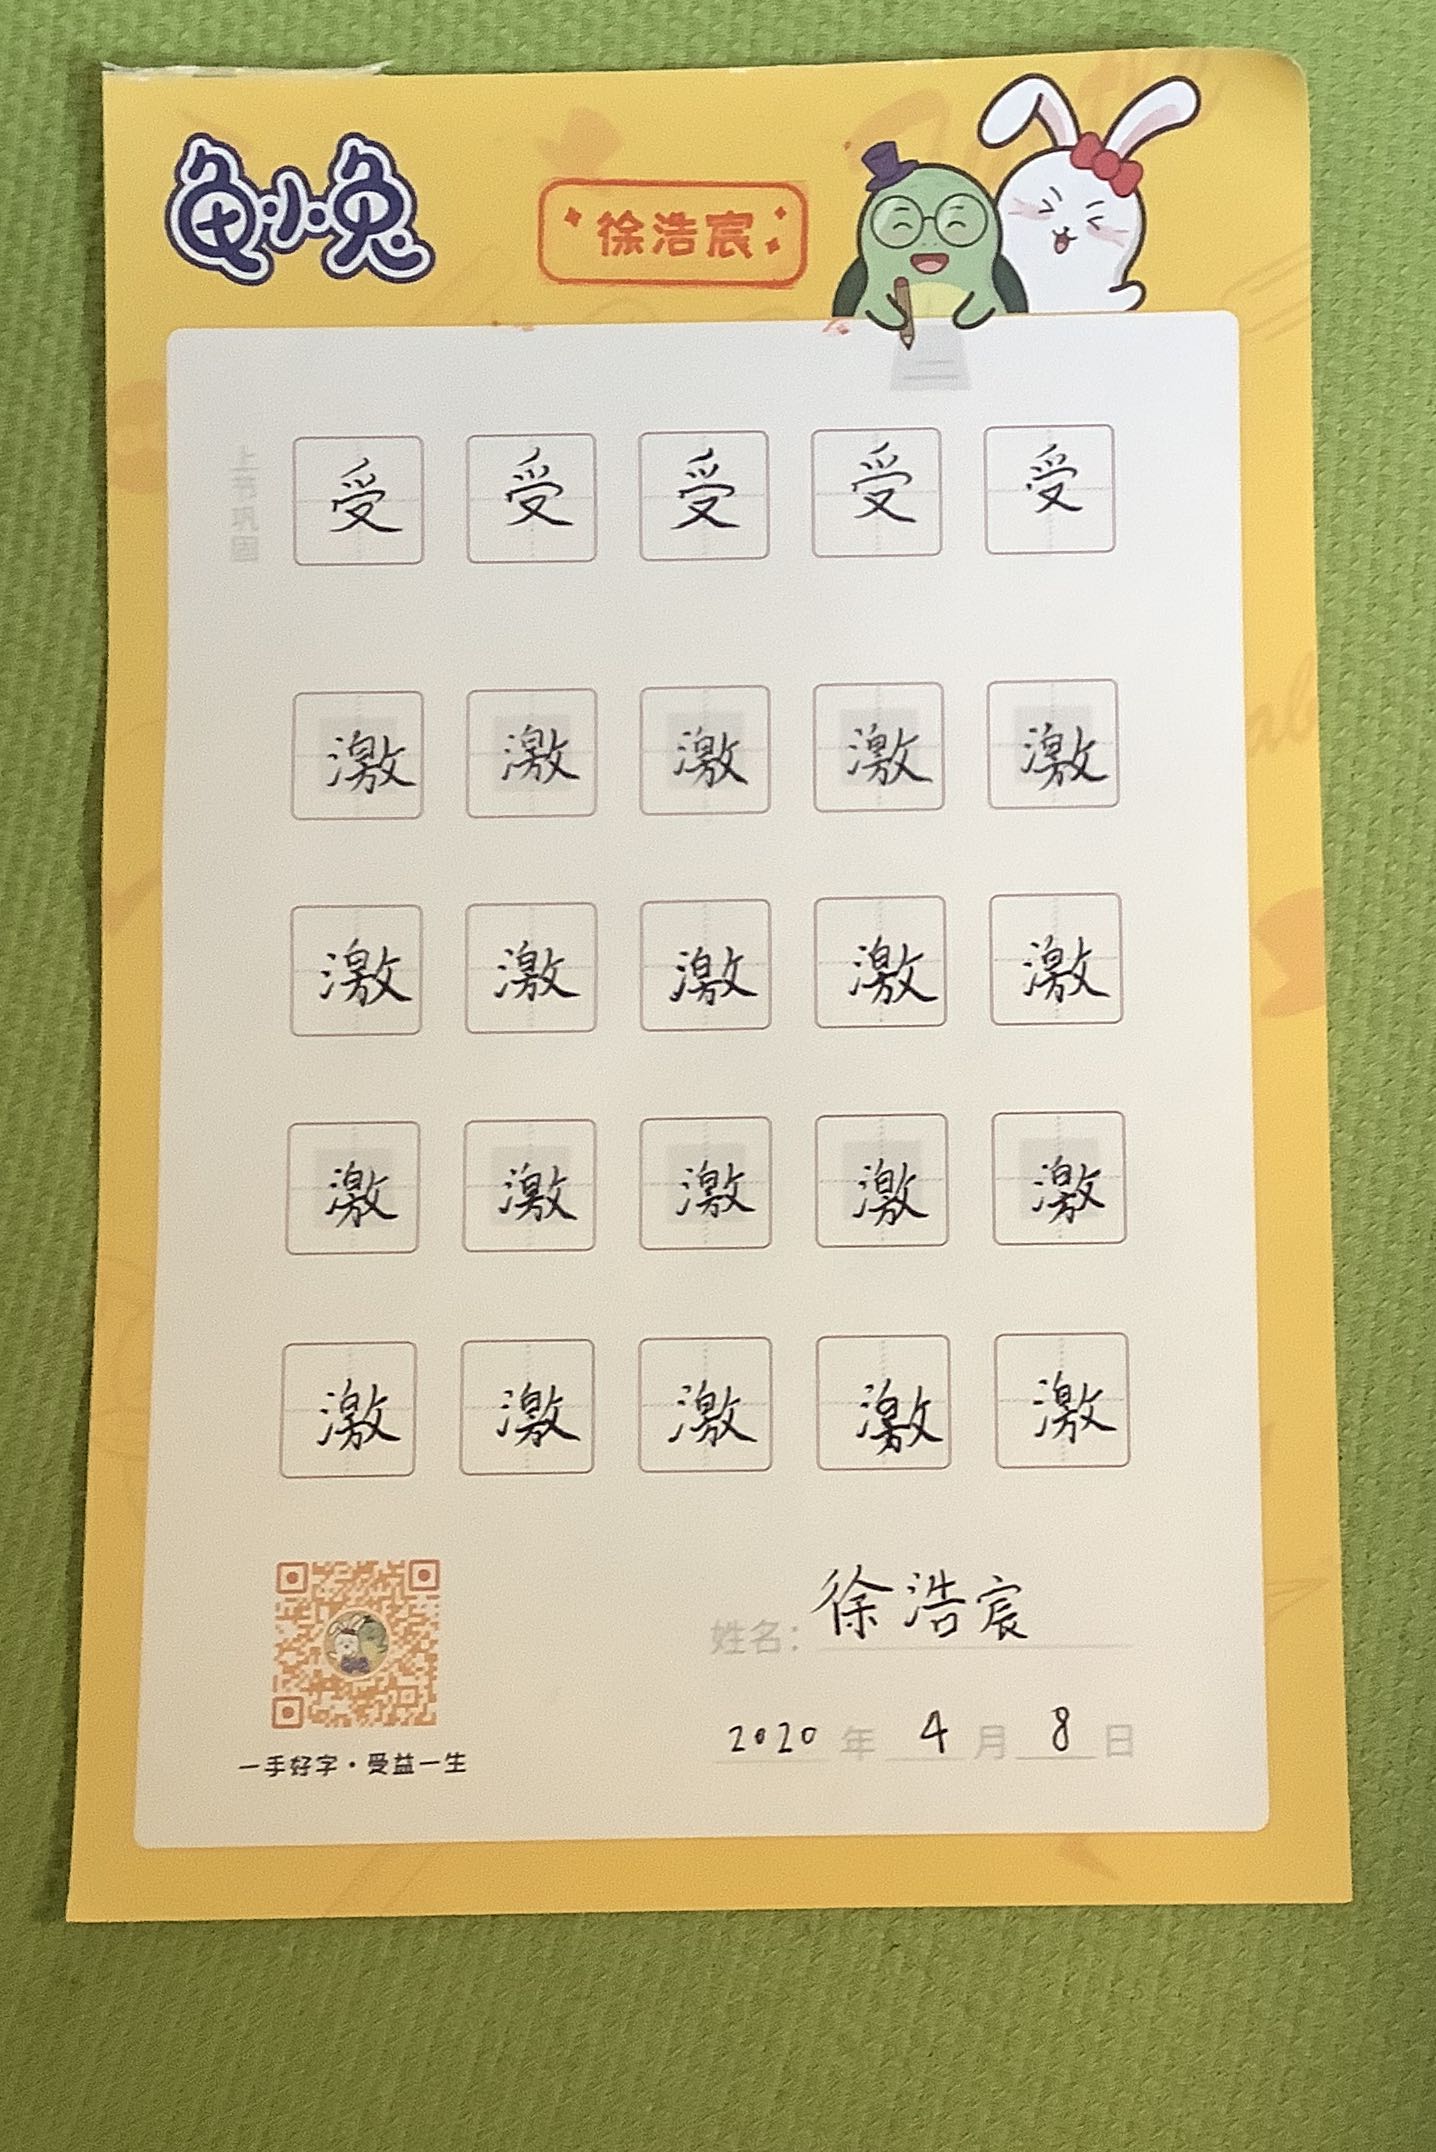 龟小兔
徐浩宸
上节巩固
受 受 受 受 受
激 激 激 激 激
激 激 激 激 激
激 激 激 激 激
激 激 激 激 激
姓名：徐浩宸
2020年4月8日
一手好字·受益一生